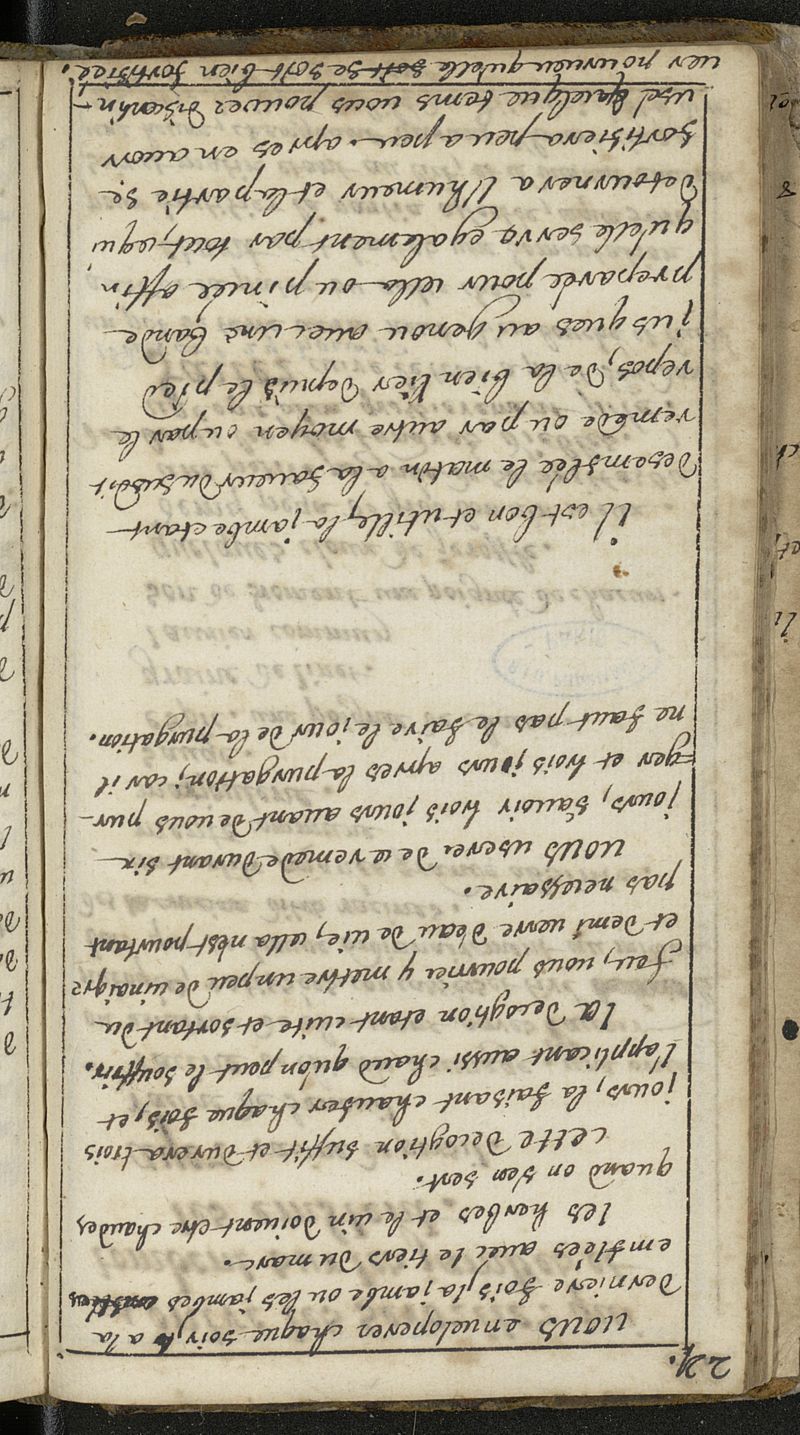 24.
vous enveloperer chaque soir, a la
derniere fois, la jambe ou les jambes
emflées avec le tiers du marc.
les herbes et le vin doivent etre chaudes
quand on s'en sert.
cette decoction suffit et durera trois
jours, la faisant chaufer chaque fois, et
l'applicant aussi chaud qu'on peut le souffrir.
la decoction etant cuite et sortant du
feu, vous pourriez y mettre un peu de vinaigre
et demi verre d'eau de vie, cella n'est pourtant
pas necessaire.
vous userer de ce remede durant six
jours, sauoir trois jours auant de vous pur-
=ger et trois jours apres la purgation; car il
ne faut pas le faire le jour de la purgation.
il est bon et utille, la jambe etant
desemflée le matin a la faueur du susdit
remede ou par autre moyen ou par le
repos, de la bien lier depuis le pied
jusques au genou auec une bande
preparée pour cella ou pincée affin
qu'elle serre egalement par tout, ce qui
detournera l'humeur et la partie se
fortifiera peu a peu. apres en auoir
usé quelque tems vous pouvez discontin-
uer pourueu qu'elle se soit bien fortifiée.